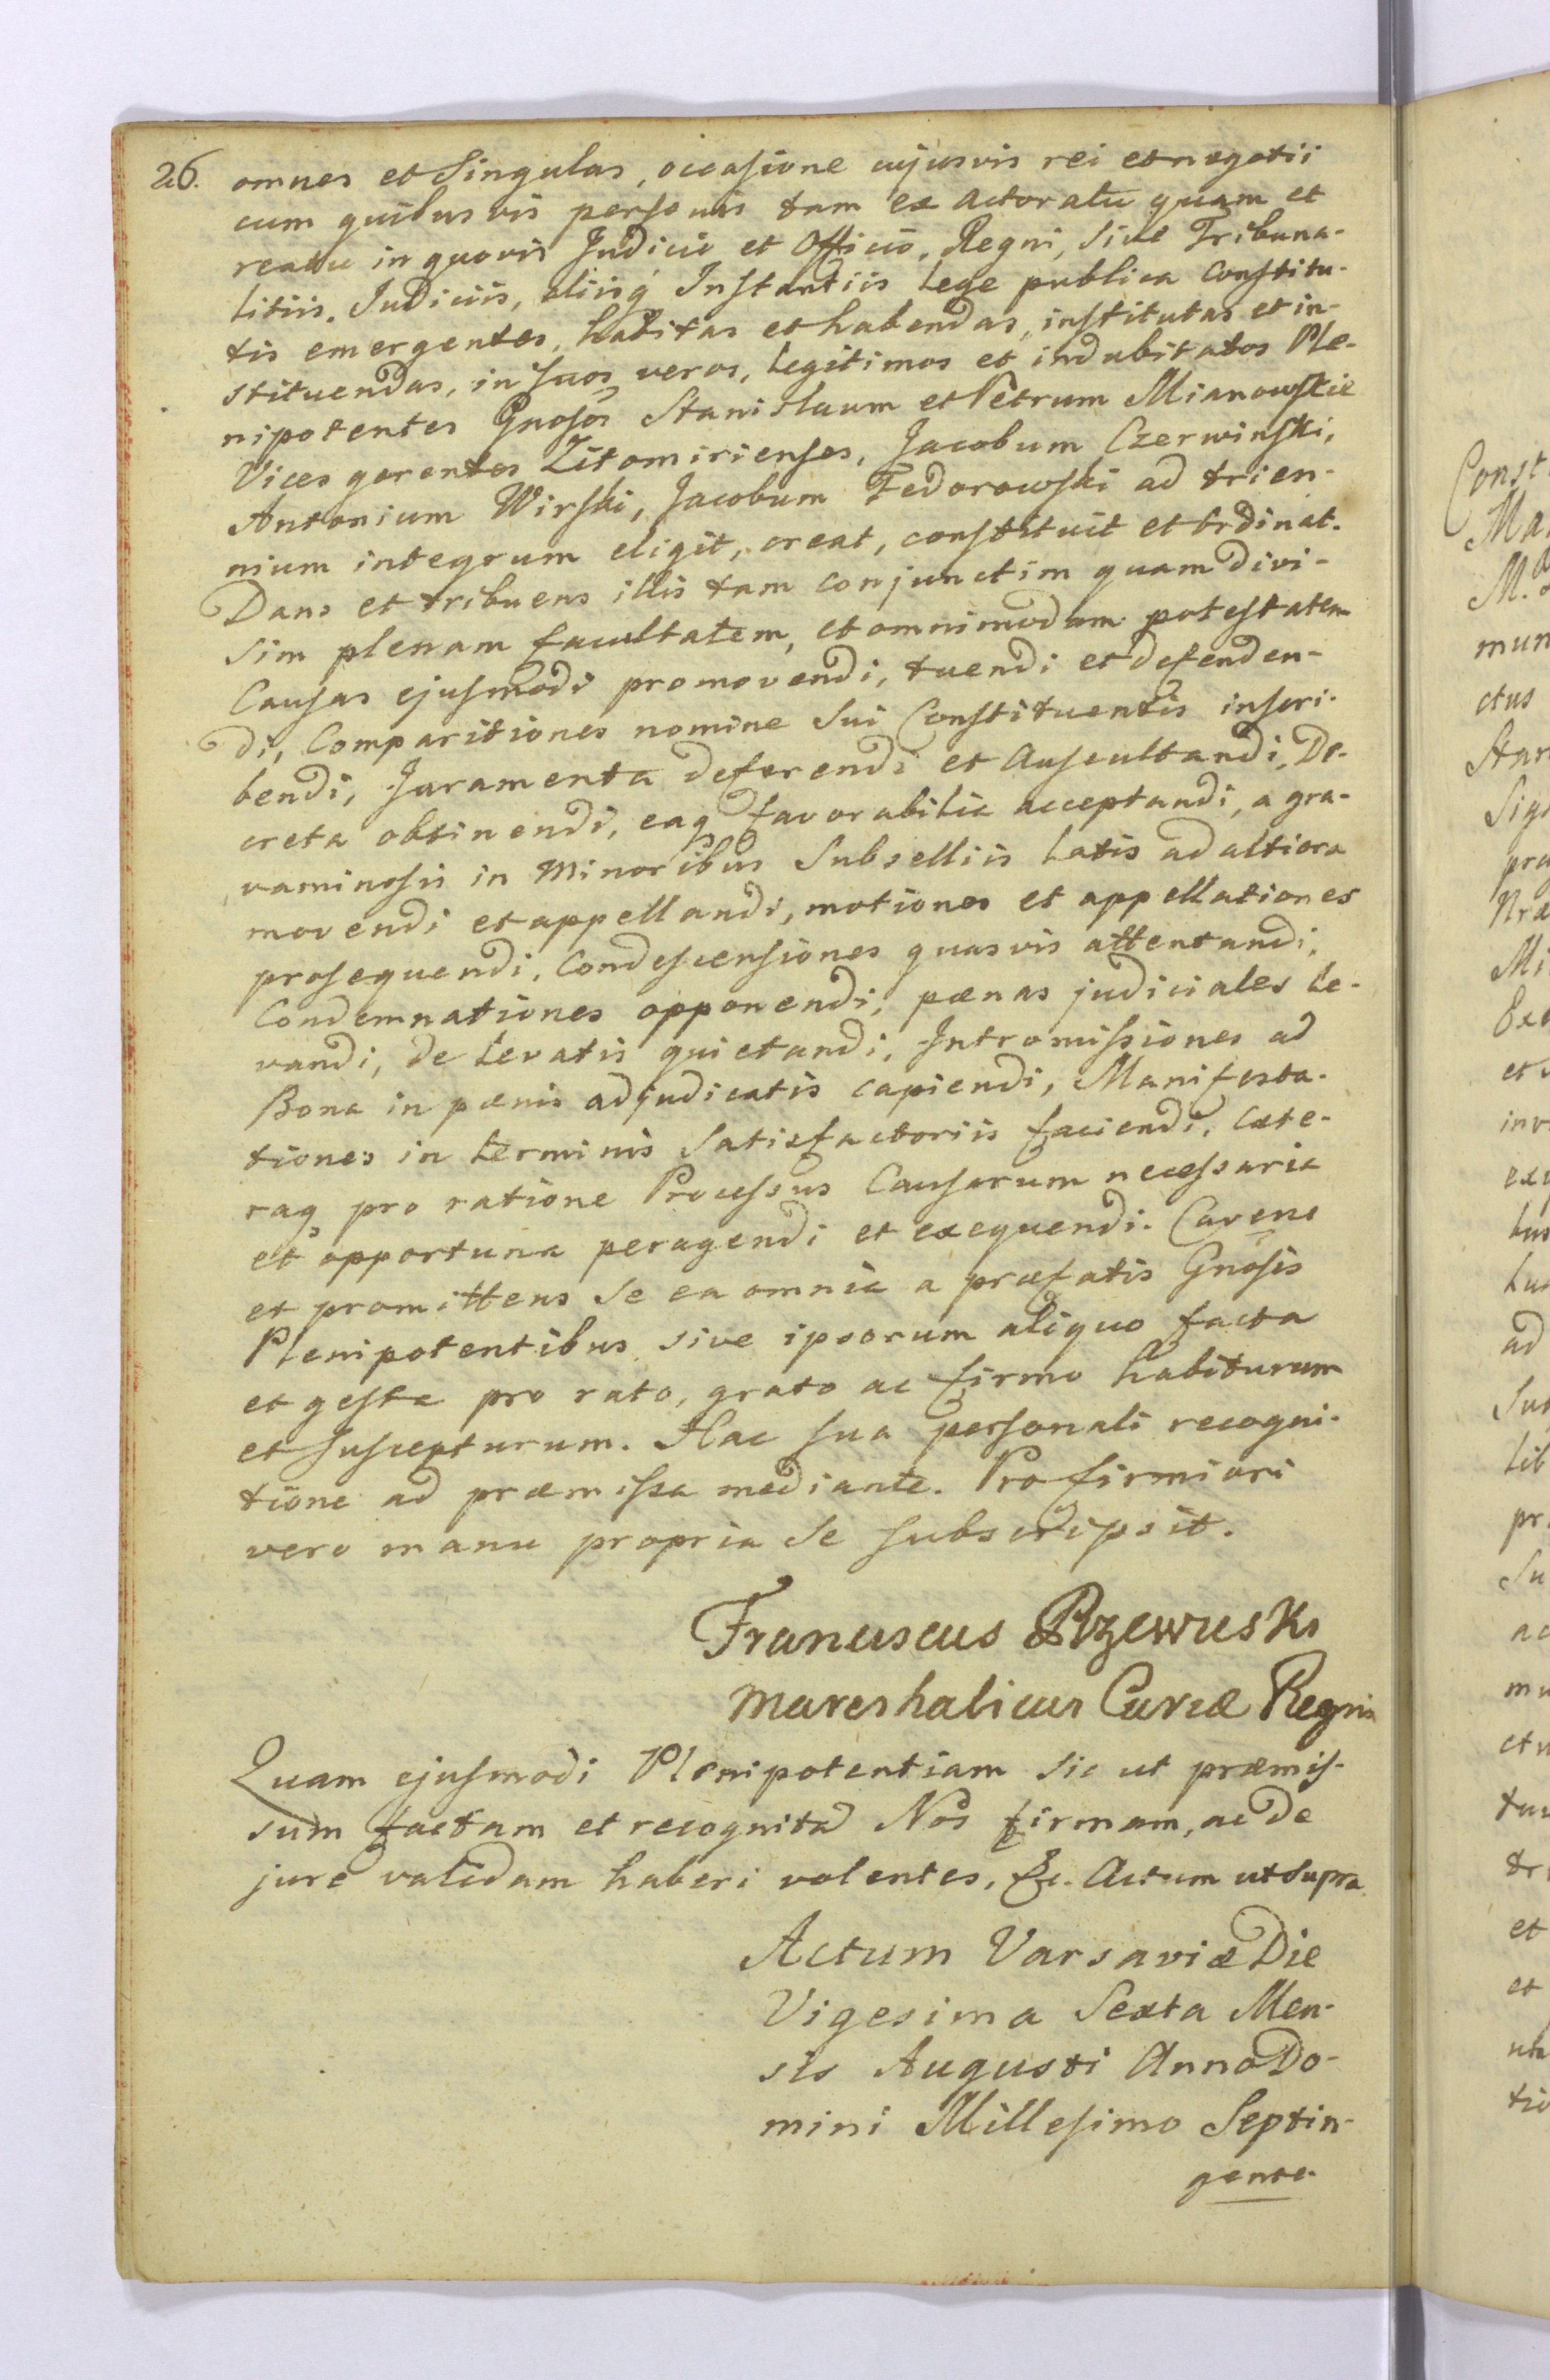 26.
omnes et Singulas, occasione cujusvis rei et negotii
cum quibusvis personis tam ex Actoratu quam et
reatu in quovis Judicio et Officio, Regni, Sive Tribuna-
litiis. Judiciis, aliisq́ Instantiis Lege publica Constitu-
tis emergentes, habitas et habendas, institutas et in-
stituendas, in suos veros, Legitimos et indubitatos Ple-
nipotentes Gnosos Stanislaum et Petrum Mianowskie
Vices gerentes Zitomirienses, Jacobum Czerwinski,
Antonium Wirski, Jacobum Fedorowski ad trien-
nium integrum eligit, creat, constituit et Ordinat.
Dans et tribuens illis tam conjunctim quam divi-
sim plenam facultatem, et omnimodam potestatem
Causas ejusmodi promovendi, tuendi et defenden-
di, Comparitiones nomine Sui Constituentis inscri-
bendi, Juramenta deferendi et Auscultandi, De-
creta obtinendi, eaq favorabilia acceptandi, a gra-
vaminosis in Minoribus Subselliis Latis ad altiora
movendi et appellandi, motiones et appellationes
prosequendi, Condescensiones quasvis attentandi,
Condemnationes opponendi, pænas judiciales Le-
vandi, de Levatis quietandi, Intromissiones ad
Bona in pænis adjudicatis capiendi, Manifesta-
tiones in Terminis Satisfactoriis faciendi, Cæte-
raq pro ratione Processus Causarum necessaria
et opportuna peragendi et exequendi. Cavens
et promittens Se ea omnia a præfatis Gnosis
Plenipotentibus sive ipsorum aliquo facta
et gesta pro rato, grato ac firmo habiturum
et Suscepturum. Hac sua personali recogni-
tione ad præmissa mediante. Pro firmiori
vero manu propria Se subscripsit.
Franciscus Rzewuski
Mareshalicus Curiæ Regni
Quam ejusmodi Plenipotentiam Sic ut præmis-
sum factam et recognitā Nos firmam, ac de
jure validam haberi volentes, &c. Actum ut Supra
Actum Varsaviæ Die
Vigesima Sexta Men-
sis Augusti Anno Do-
mini Millesimo Septin-
gente-
Const
Ma
M.
mun
ctus
Stan
Sig
præ
Nræ
Mi
Exc
et
inv
exi
tus
ad
Sub
Lib
pr
Su
ac
mu
ctu
tun
tr
et
et
tio